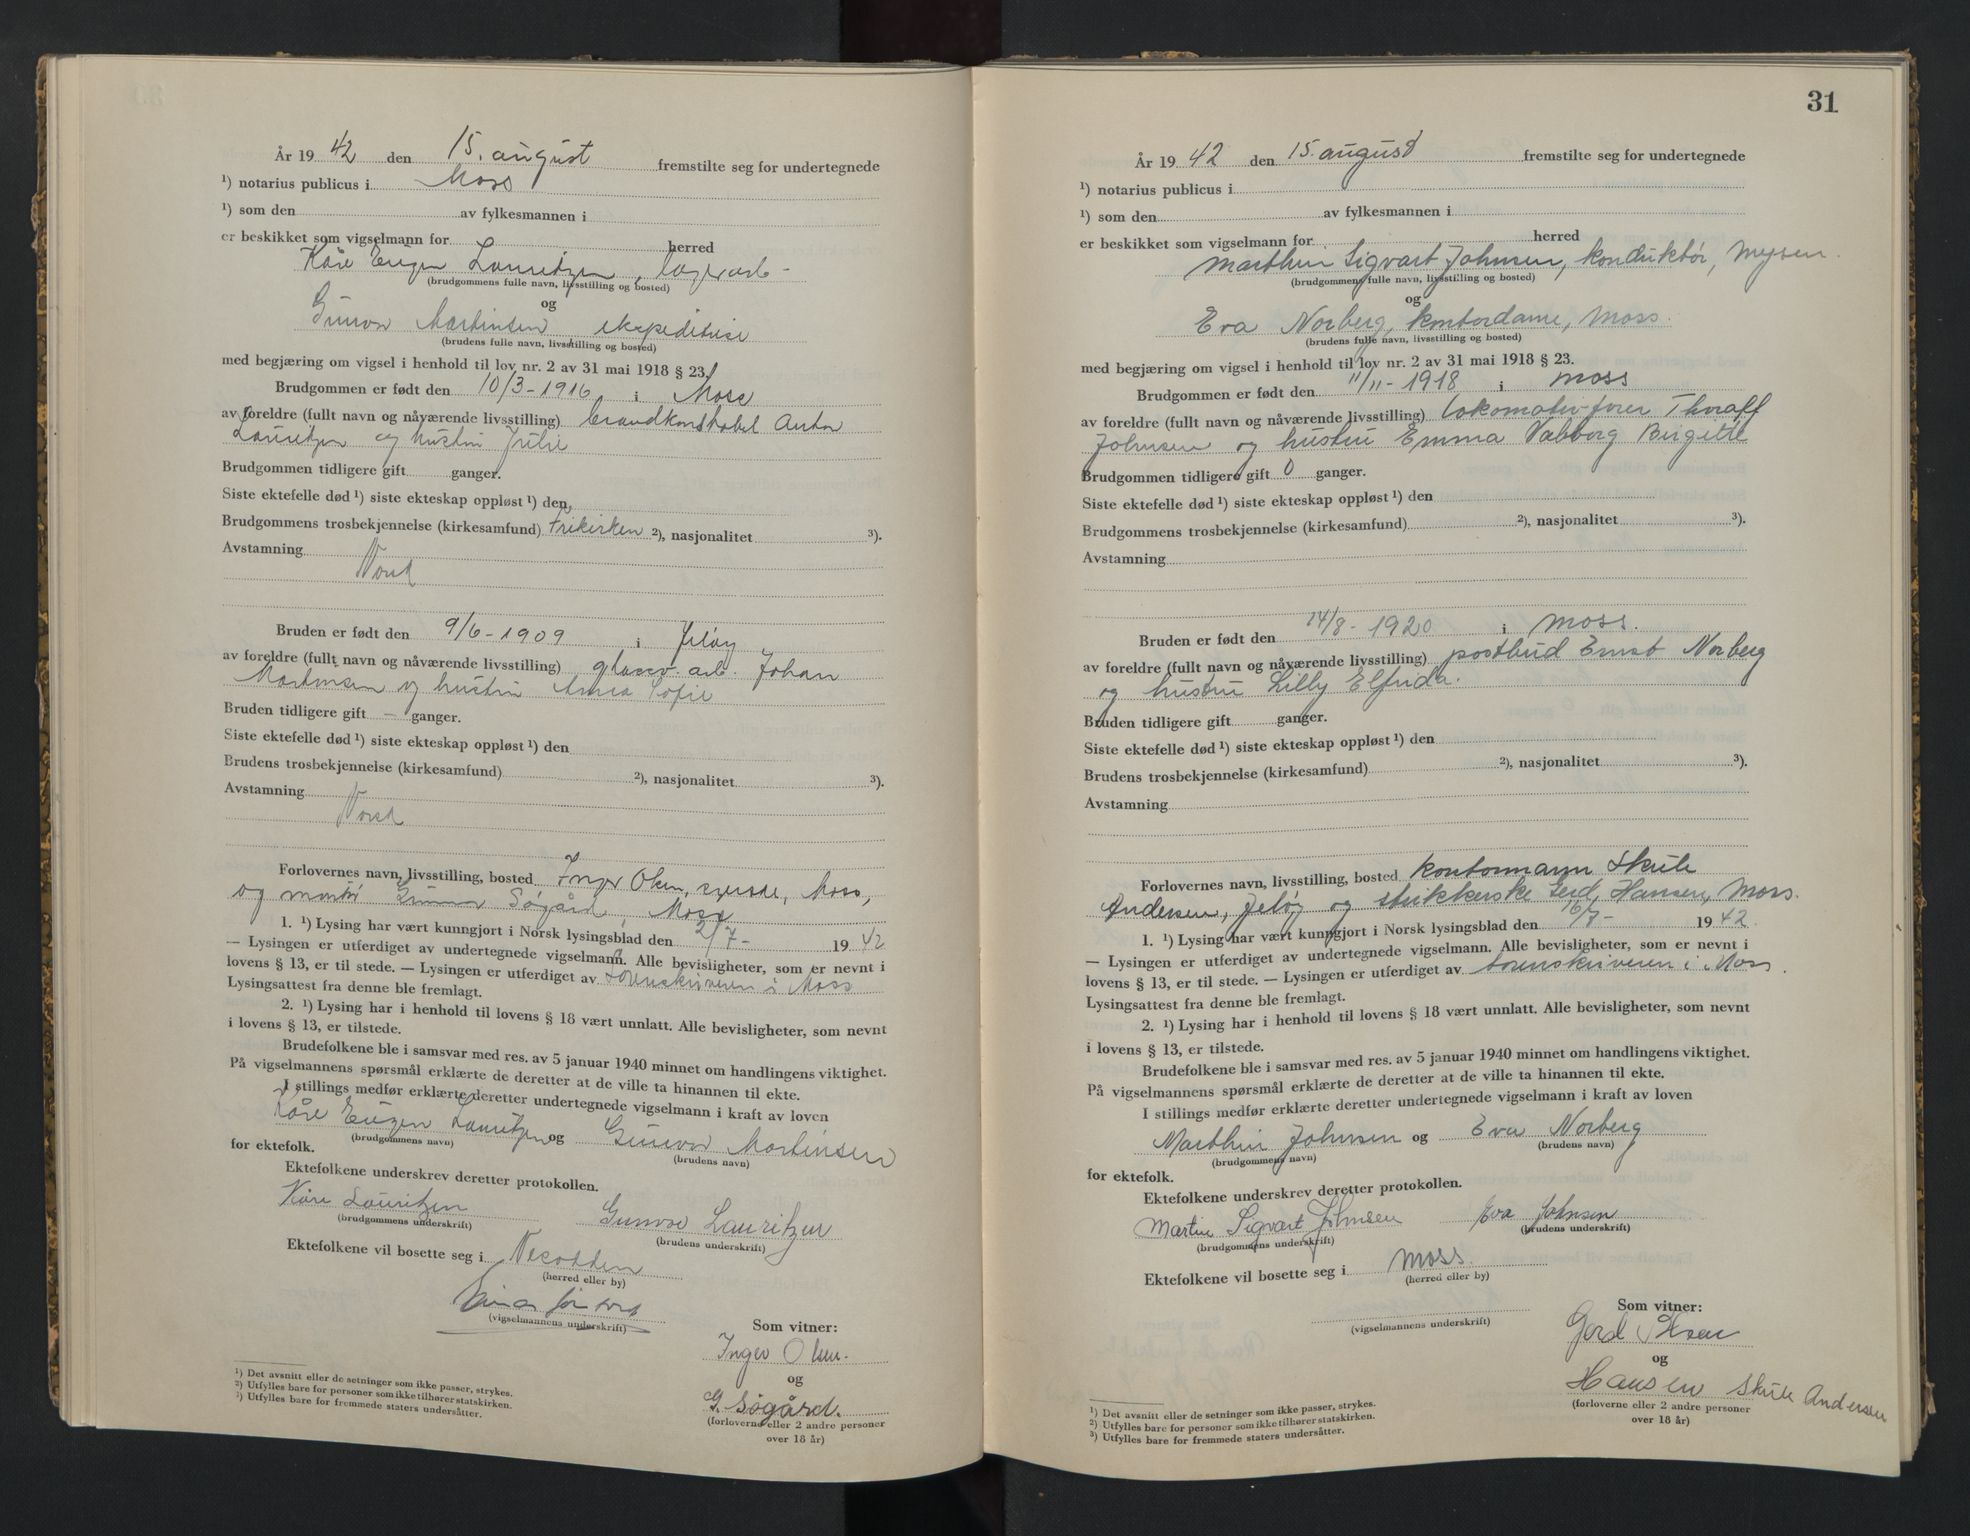 År 19 42 den 15. august fremstilte seg for undertegnede
¹) notarius publicus i Moss
¹) som den av fylkesmannen i
er beskikket som vigselmann for herred
Kåre Eugen Lauritzen, lagerarb-
(brudgommens fulle navn, livsstilling og bosted)
og
Gunvor Martinsen ekspeditrise
(brudens fulle navn, livsstilling og bosted)
med begjæring om vigsel i henhold til lov nr. 2 av 31 mai 1918 § 23.
Brudgommen er født den 10/3-1916 i Moss
av foreldre (fullt navn og nåværende livsstilling) brandkonstabel Anton
Lauritzen og hustru Julie
Brudgommen tidligere gift ganger.
Siste ektefelle død ¹) siste ekteskap oppløst ¹) den
Brudgommens trosbekjennelse (kirkesamfund) Frikirken ²), nasjonalitet ³).
Avstamning
Norsk
Bruden er født den 9/6-1909 i Jeløy
av foreldre (fullt navn og nåværende livsstilling) glassv. arb. Johan
Martinsen og hustru Anna Sofie
Bruden tidligere gift — ganger.
Siste ektefelle død ¹) siste ekteskap oppløst ¹) den
Brudens trosbekjennelse (kirkesamfund) ²), nasjonalitet ³).
Avstamning
Norsk
Forlovernes navn, livsstilling, bosted Inger Olsen, syerske, Moss,
og Gunnar Søgård, Moss
1. ¹) Lysing har vært kunngjort i Norsk lysingsblad den 2/7- 19 42
— Lysingen er utferdiget av undertegnede vigselmann. Alle bevisligheter, som er nevnt i
lovens § 13, er til stede. — Lysingen er utferdiget av sorenskriveren i Moss
Lysingsattest fra denne ble fremlagt.
2. ¹) Lysing har i henhold til lovens § 18 vært unnlatt. Alle bevisligheter, som nevnt
i lovens § 13, er tilstede.
Brudefolkene ble i samsvar med res. av 5 januar 1940 minnet om handlingens viktighet.
På vigselmannens spørsmål erklærte de deretter at de ville ta hinannen til ekte.
I stillings medfør erklærte deretter undertegnede vigselmann i kraft av loven
Kåre Eugen Lauritzen og Gunvor Martinsen
(brudgommens navn) (brudens navn)
for ektefolk.
Ektefolkene underskrev deretter protokollen.
Kåre Lauritzen Gunvor Lauritzen
(brudgommens underskrift) (brudens underskrift)
Ektefolkene vil bosette seg i Nesodden
(herred eller by)
(vigselmannens underskrift)
Som vitner:
Inger Olsen.
og
G. Søgård.
(forloverne eller 2 andre personer
over 18 år)
¹) Det avsnitt eller de setninger som ikke passer, strykes.
²) Utfylles bare for personer som ikke tilhører statskirken.
³) Utfylles bare for fremmede staters undersåtter.
31
År 19 42 den 15. august fremstilte seg for undertegnede
¹) notarius publicus i
¹) som den av fylkesmannen i
er beskikket som vigselmann for herred
Marthin Sigvart Johnsen, konduktør, Mysen.
(brudgommens fulle navn, livsstilling og bosted)
og
Eva Norberg, kontordame, Moss.
(brudens fulle navn, livsstilling og bosted)
med begjæring om vigsel i henhold til lov nr. 2 av 31 mai 1918 § 23.
Brudgommen er født den 11/11-1918 i Moss
av foreldre (fullt navn og nåværende livsstilling) lokomotiv-fører Thoralf
Johnsen og hustru Emma Valborg Birgitte
Brudgommen tidligere gift 0 ganger.
Siste ektefelle død ¹) siste ekteskap oppløst ¹) den
Brudgommens trosbekjennelse (kirkesamfund) ²), nasjonalitet ³).
Avstamning
Bruden er født den 14/8-1920 i Moss.
av foreldre (fullt navn og nåværende livsstilling) postbud Ernst Norberg
og hustru Lilly Elfrida.
Bruden tidligere gift ganger.
Siste ektefelle død ¹) siste ekteskap oppløst ¹) den
Brudens trosbekjennelse (kirkesamfund) ²), nasjonalitet ³).
Avstamning
Forlovernes navn, livsstilling, bosted kontormann Skule
Andersen, Jeløy og strikkerske Gerd Hansen, Moss.
1. ¹) Lysing har vært kunngjort i Norsk lysingsblad den 16/7- 19 42.
— Lysingen er utferdiget av undertegnede vigselmann. Alle bevisligheter, som er nevnt i
lovens § 13, er til stede. — Lysingen er utferdiget av sorenskriveren i Moss.
Lysingsattest fra denne ble fremlagt.
2. ¹) Lysing har i henhold til lovens § 18 vært unnlatt. Alle bevisligheter, som nevnt
i lovens § 13, er tilstede.
Brudefolkene ble i samsvar med res. av 5 januar 1940 minnet om handlingens viktighet.
På vigselmannens spørsmål erklærte de deretter at de ville ta hinannen til ekte.
I stillings medfør erklærte deretter undertegnede vigselmann i kraft av loven
Marthin Johnsen og Eva Norberg
(brudgommens navn) (brudens navn)
for ektefolk.
Ektefolkene underskrev deretter protokollen.
Martin Sigvart Johnsen Eva Johnsen
(brudgommens underskrift) (brudens underskrift)
Ektefolkene vil bosette seg i Moss.
(herred eller by)
(vigselmannens underskrift)
Som vitner:
Gerd
og
Hansen Skule Andersen
(forloverne eller 2 andre personer
over 18 år)
¹) Det avsnitt eller de setninger som ikke passer, strykes.
²) Utfylles bare for personer som ikke tilhører statskirken.
³) Utfylles bare for fremmede staters undersåtter.